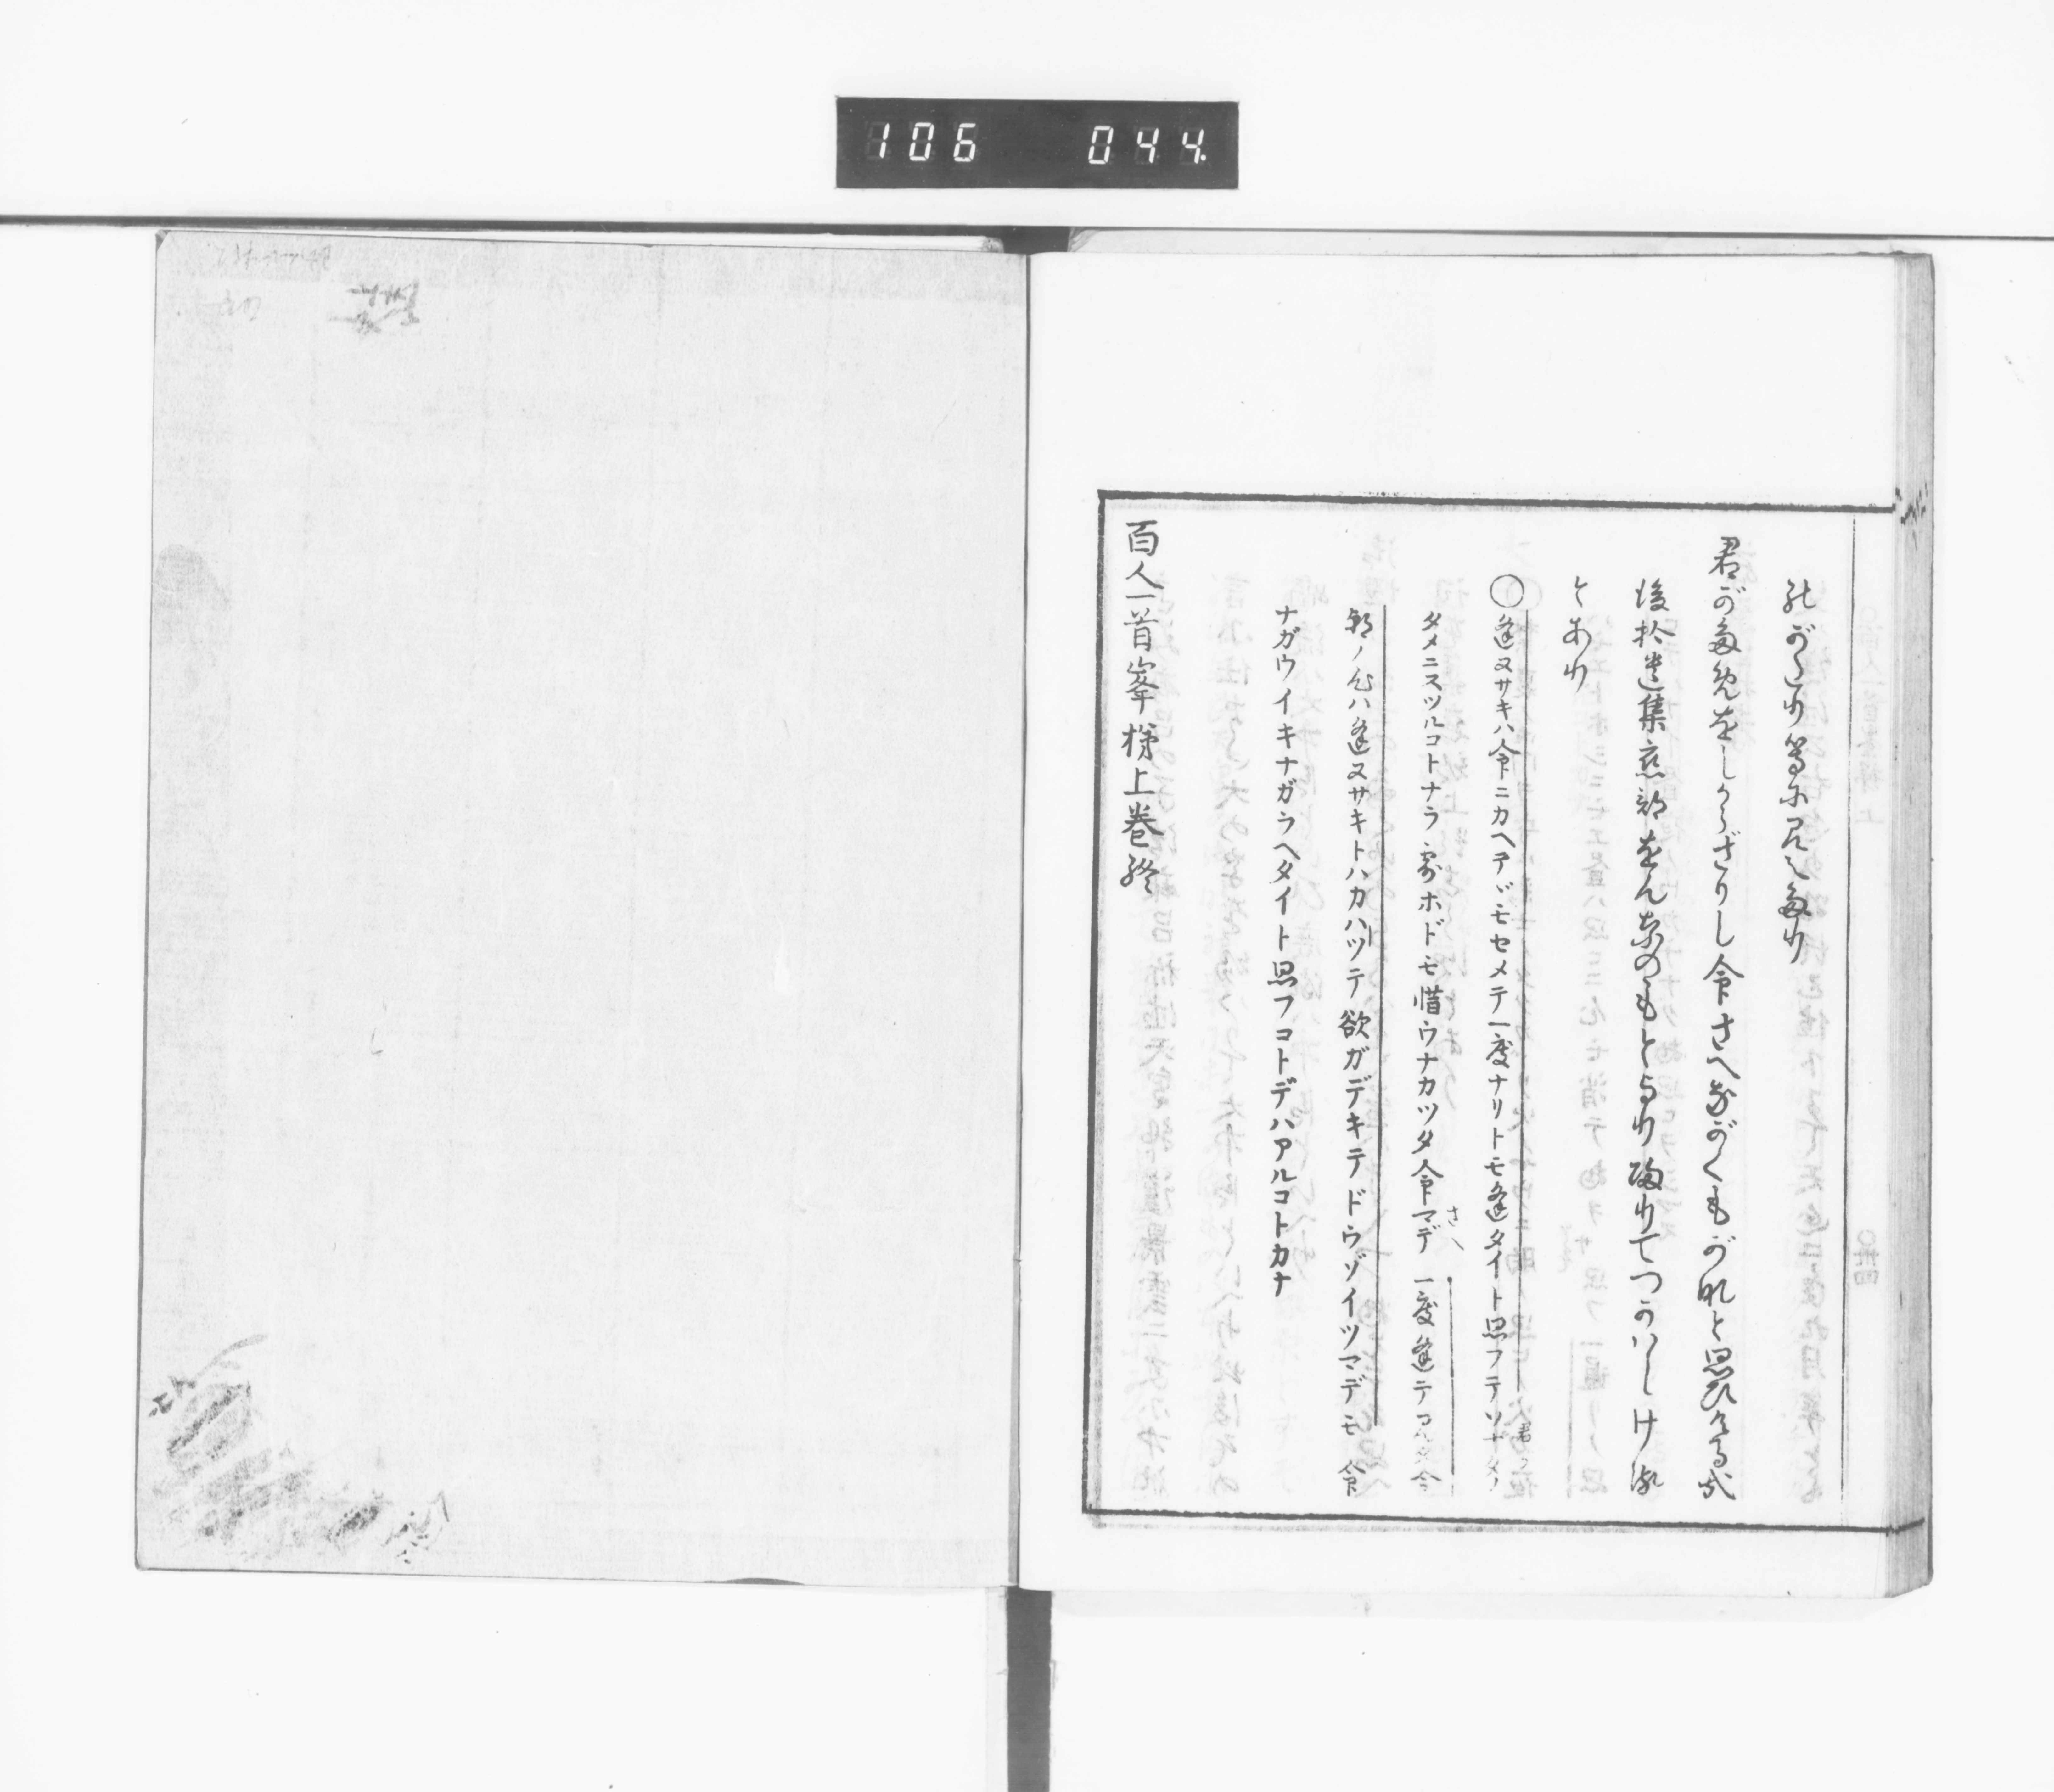 106 044
がたり等に見えたり
君がためをしからざりし命さへながくもがなと思ひけるかな
後拾遺集恋部をんなのもとより帰りてつかはしける
とあり
○逢ヌサキハ命ニカヘテヾモセメテ一度ナリトモ逢タイト思フテソナタノ
タメニスツルコトナラ露ホドモ惜ウナカツタ命マデ一度逢テ今
朝ノ心ハ逢ヌサキトハカハツテ欲ガデキテドウゾイツマデモ命
ナガウイキナガラヘタイト思フコトデハアルコトカナ
さへ
君
百人一首峯梯上巻終